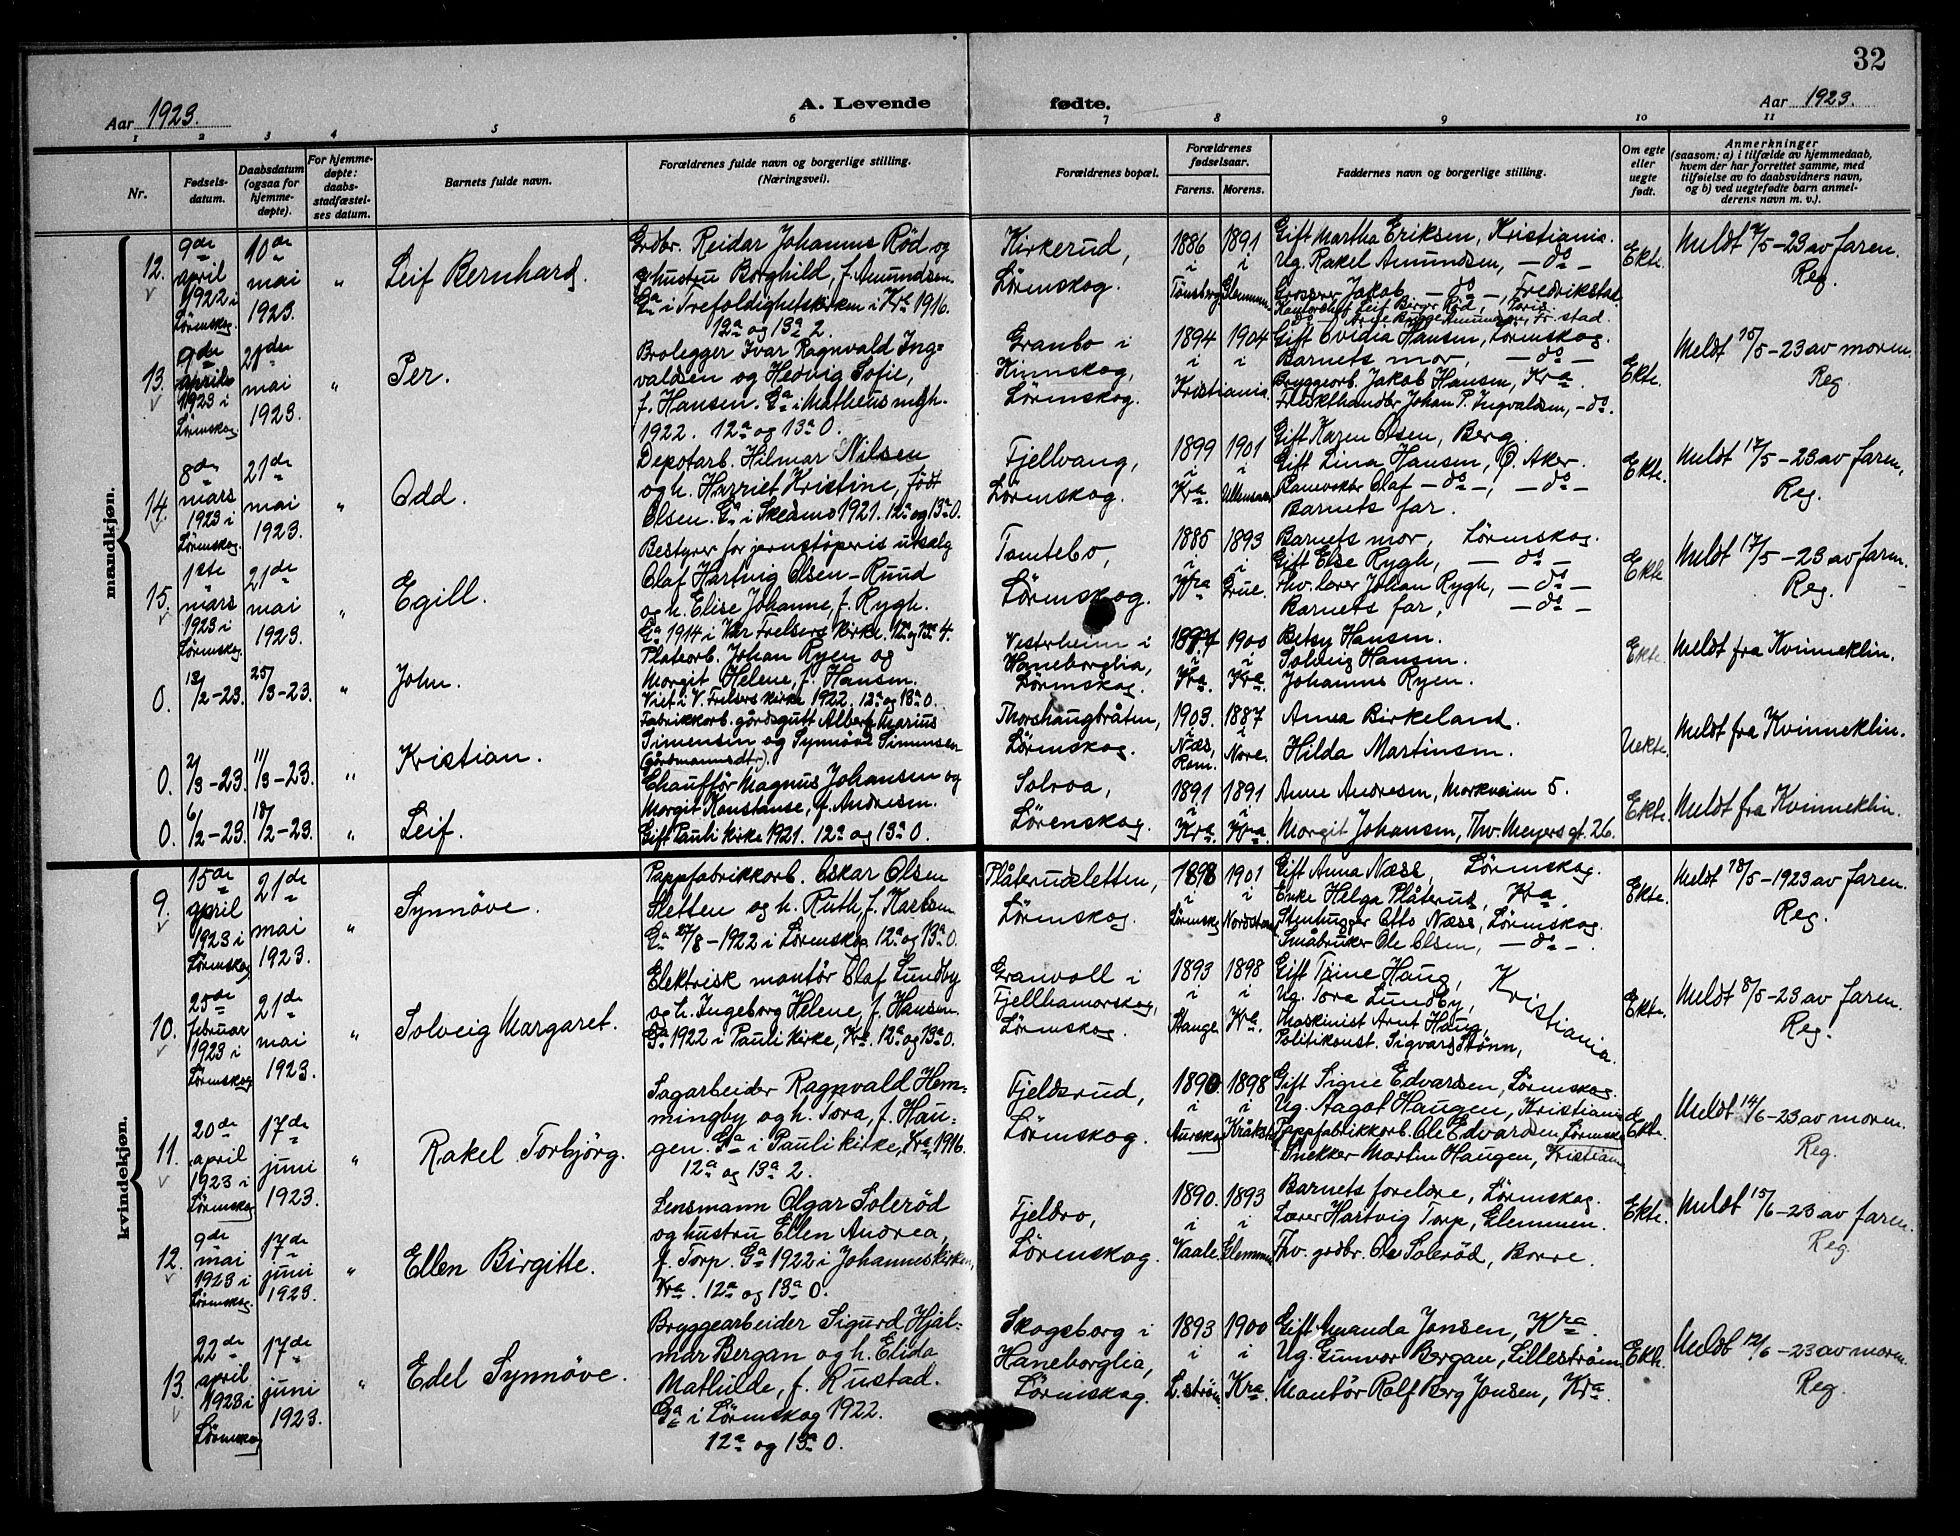 32
Aar 1923. A. Levende fødte. Aar 1923.
1 2 3 4 5 6 7 8 9 10 11
Nr.
Fødsels-
datum.
Daabsdatum
(ogsaa for
hjemme-
døpte).
For hjemme-
døpte:
daabs-
stadfæstel-
ses datum.
Barnets fulde navn.
Forældrenes fulde navn og borgerlige stilling.
(Næringsvei).
Forældrenes bopæl.
Forældrenes
fødselsaar.
Farens. Morens.
Faddernes navn og borgerlige stilling.
Om egte
eller
uegte
født.
Anmerkninger
(saasom: a) i tilfælde av hjemmedaab,
hvem der har forrettet samme, med
tilføielse av to daabsvidners navn,
og b) ved uegtefødte barn anmel-
derens navn m. v.).
mandkjøn.
12.
9de
april
1922 i
Lörenskog.
10de
mai
1923.
"
Leif Bernhard.
Grdbr. Reidar Johannes Röd og
hustru Borghild, f. Amundsen
Ga i Trefoldighetskirken i Kra 1916.
12a og 13a 2.
Kirkerud,
Lörenskog.
1886
i
Tönsberg
1891
i
Glemmen
Gift Martha Eriksen, Kristiania.
Ug. Rakel Amundsen, - do -
Grosserer Jakob - do -, Fredrikstad
Ekte.
Meldt 7/5-23 av faren.
Reg.
13.
9de
april
1923 i
Lörenskog
21de
mai
1923.
"
Per.
Brolegger Ivar Ragnvald Ing-
valdsen og Hedvig Sofie,
f. Hansen. Ga i Matheus mgh.
1922. 12a og 13a 0.
Granbo i
Kinnskog,
Lörenskog.
1894 1904
i i
Kristiania.
Gift Ovidia Hansen, Lörenskog.
Barnets mor, - do -
Bryggeorb. Jakob Hansen, Kra.
Frukthandler Johan P. Ingvaldsen, - do.
Ekte.
Meldt 15/5-23 av moren.
Reg.
14.
8de
mars
1923 i
Lörenskog.
21de
mai
1923.
"
Odd.
Depotarb. Hilmar Nilsen
og h. Harriet Kristine, født
Olsen. Ga i Skedsmo 1921. 12a og 13a 0.
Fjellvang,
Lörenskog.
1899
i
Kra.
1901
i
Ullensaker
Gift Karen Olsen, Berg.
Gift Lina Hansen, Ø. Aker.
Banevokter Olaf - do -, - do -
Barnets far.
Ekte.
Meldt 17/5-23 av faren.
Reg.
15.
1ste
mars
1923 i
Lörenskog.
21de
mai
1923.
"
Egill.
Bestyrer for jernstöperis utsalg
Olaf Hartvig Olsen-Ruud
og h. Elise Johanne, f. Rygh.
Ga 1914 i Vår Frelsers kirke. 12a og 13a 4.
Tomtebo,
Lörenskog.
1885
i
Kra
1893
i
Grue.
Barnets mor, Lörenskog.
Gift Else Rygh, - do -
Fhv. lærer Johan Rygh, - do -
Barnets far, - do -
Ekte
Meldt 17/5-23 av faren.
Reg.
0.
13/2-23.
25/3-23.
"
John.
Platearb. Johan Ryen og
Margit Helene, f. Hansen.
Viet i V. Frelsers kirke 1922. 12a og 13a 0.
Vesterheim i
Haneborglia,
Lörenskog.
1897
i
Kra.
1900
i
Kra.
Betsy Hansen.
Solveig Hansen.
Johannes Ryen.
Ekte.
Meldt fra Kvinneklin.
0.
2/3-23.
11/3-23.
"
Kristian.
Fabrikkarb. gårdsgutt Albert Marius
Simensen og Synnöve Simensen
(gårdmannsdtr).
Thorshaugbråten,
Lörenskog.
1903.
Næs,
Rom.
1887
i
Nore.
Anna Birkeland.
Hilda Martinsen.
Uekte.
Meldt fra Kvinneklin.
0.
6/2-23.
18/2-23.
"
Leif.
Chauffør Magnus Johansen og
Margit Konstanse, f. Andresen.
Gift Pauli kirke 1921. 12a og 13a 0.
Solroa,
Lörenskog.
1891
i
Kra.
1891
i
Kra.
Anne Andresen, Markveien 5.
Margit Johansen, Thv. Meyers gt. 26.
Ekte.
Meldt fra Kvinneklin.
kvindekjøn.
9.
15de
april
1923 i
Lörenskog
21de
mai
1923.
"
Synnöve.
Pappfabrikkorb. Oskar Olsen
Sletten og h. Ruth, f. Karlsen
Ga 27/8-1922 i Lörenskog 12a og 13a 0.
Plåterudsletten,
Lörenskog.
1898
i
Lörenskog
1901
i
Nordstrand
Gift Anna Næss, Lörenskog.
Enke Helga Plåterud, Kra.
Stenhugger Otto Næss, Lörenskog.
Småbruker Ole Olsen, - do -.
Ekte.
Meldt 18/5-1923 av faren.
Reg.
10.
25de
februar
1923 i
Lörenskog
21de
mai
1923.
"
Solveig Margaret.
Elektrisk montör Olaf Lundby
og h. Ingeborg Helene, f. Hansen.
Ga 1922 i Pauli kirke, Kra. 12a og 13a 0.
Granvoll i
Fjellhamarskog,
Lörenskog.
1893
i
Stange
1898
i
Kra.
Gift Trine Haug,
Ug. Tora Lundby,
Maskinist Arnt Haug,
Politikonst. Sigvard Stönn,
Kristiania.
Ekte.
Meldt 8/5-23 av faren.
Reg.
11.
20de
april
1923 i
Lörenskog
17de
juni
1923.
"
Rakel Torbjörg.
Sagarbeider Ragnvald Hem-
mingby og h. Tora, f. Hau-
gen. Ga i Pauli kirke, Kra 1916.
12a og 13a 2.
Fjeldsrud,
Lörenskog.
1890
i
Aurskog
1898
i
Gift Signe Edvardsen, Lörenskog.
Ug. Aagot Haugen, Kristiania
Pappfabrikkorb. Ole Edvardsen, Lörenskog
Snekker Martin Haugen, Kristiania
Ekte.
Meldt 14/6-23 av moren.
Reg.
12.
9de
mai
1923 i
Lörenskog.
17de
juni
1923.
"
Ellen Birgitte.
Lensmann Olgar Solerød
og hustru Ellen Andrea,
f. Torp. Ga 1922 i Johanneskirken,
Kra. 12a og 13a 0.
Fjeldro,
Lörenskog.
1890.
i
Vaale
1893
i
Glemmen
Barnets foreldre, Lörenskog.
Lærer Hartvig Torp, Glemmen.
Fhv. grdbr. Ole Solerød, Borre.
Ekte.
Meldt 15/6-23 av faren.
Reg.
13.
22de
april
1923 i
Lörenskog
17de
juni
1923.
"
Edel Synnöve.
Bryggearbeider Sigurd Hjal-
mar Bergan og h. Elida
Mathilde, f. Rustad.
Ga i Lörenskog 1922.
12a og 13a 0.
Skogsborg i
Haneborglia,
Lörenskog.
1893
i
L.ström
1900
i
Kra
Gift Amanda Jonsen, Kra.
Ug. Gunvor Bergan, Lilleström
Montör Rolf Berg Jonsen, Kra.
Ekte.
Meldt 12/6-23 av moren.
Reg.